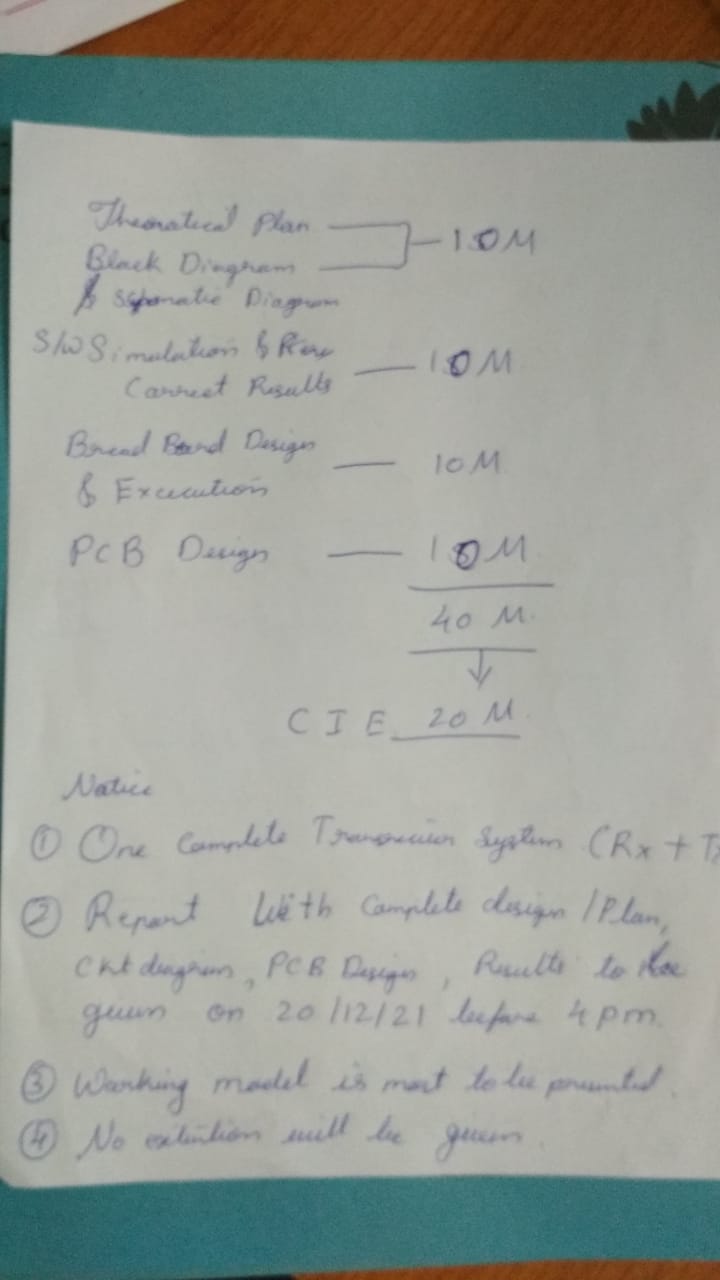 Theoratical Plan
Block Diagram — 10M
& Schematic Diagram
S/W Simulation &
Correct Results — 10M
Bread Board Design
& Excecution — 10M
PCB Design — 10M
40 M.
↓
CIE 20 M.
Notice
① One Complete Transreciver System (Rx + T
② Report With Complete design / Plan,
Ckt diagram, PCB Design, Results to be
given on 20/12/21 before 4 pm.
③ Working model is most to be presented.
④ No extention will be given.